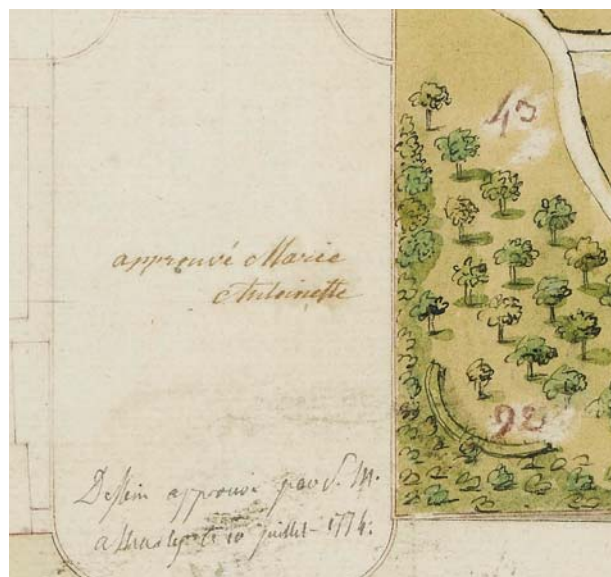 43
approuvé Marie
Antoinette
92
Dessin approuvé par S. M.
a Marly le 10 juillet 1774.